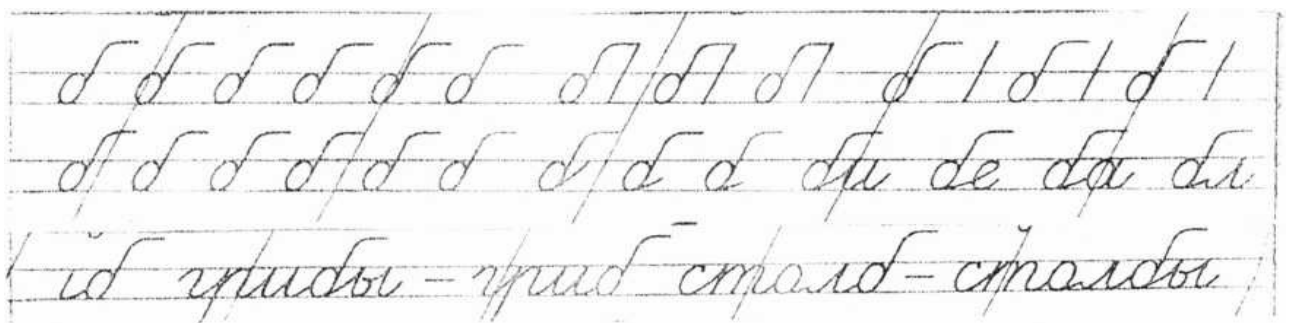 б б б б б б б| б| б| б | б | б |
б б б б б б б б б би бе ба бл
грибы – гриб столб – столбы